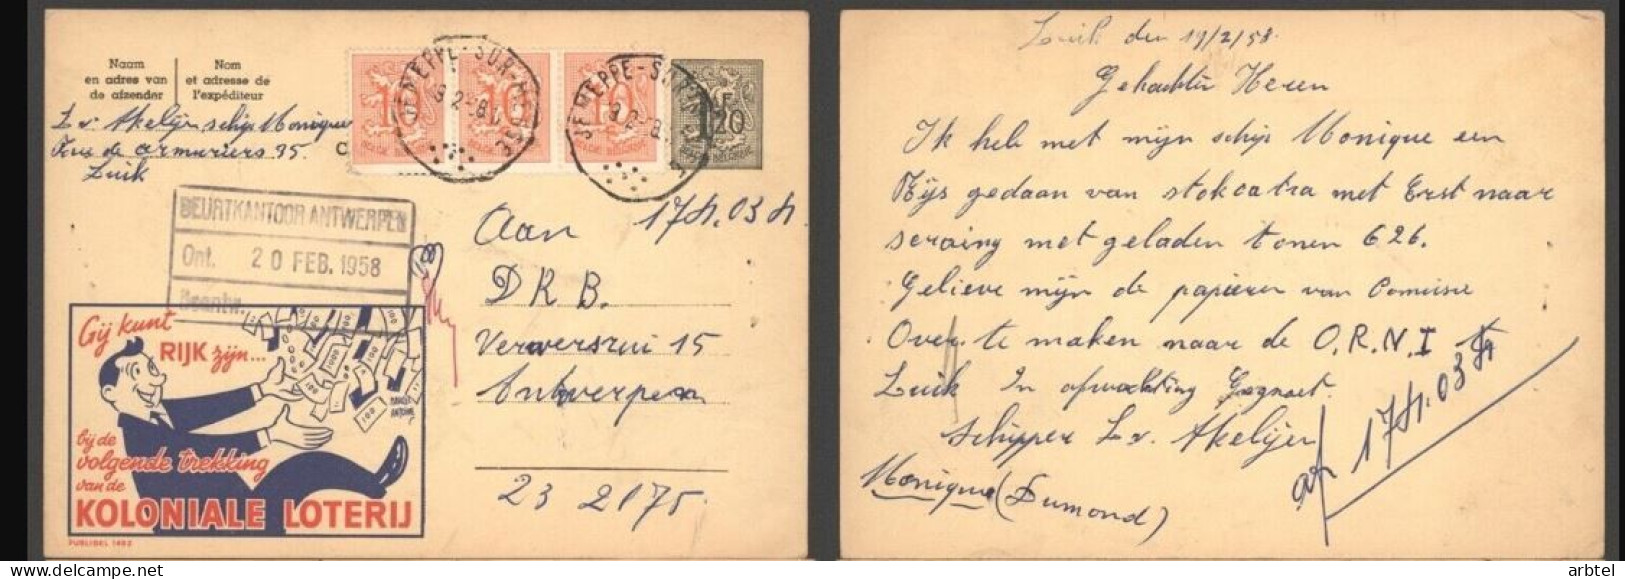 Naam
en adres van
de afzender
Nom
et adresse de
l'expéditeur
L v. Akelijen schip Monique
Rue de armuriers 95.
Luik
C
10
10
10
JEMEPPE-SUR-M
JEMEPPE-SUR-M
F
1 20
BELGIE-BELGIQUE
BEURTKANTOOR ANTWERPEN
Ont. 20 FEB. 1958
Beantw.
Aan 174.034
D R B.
Verversrui 15
Antwerpen
23 2175.
Gij kunt
RIJK zijn...
bij de
volgende trekking
van de
KOLONIALE LOTERIJ
PUBLIBEL 1402
Luik den 19/2/58
Geachten Heren
Ik heb met mijn schip Monique een
Rijs gedaan van stokcatra met Erst naar
seraing met geladen tonen 626.
Gelieve mijn de papieren van Comisie
Over te maken naar de O.R.N.I
Luik In afwachting Gegroet.
Schipper L v. Akelijen
Monique (Dumond)
174.034
arbtel